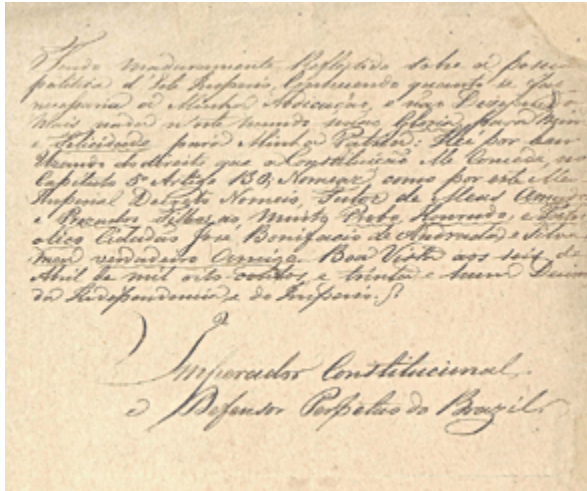 Tendo maduramente Reflectido sobre a posição
politica d'este Imperio, Conhecendo quanto se faz
necessaria a Minha Abdicação, e não Desejando
mais nada n'este mundo senão Gloria para Mim
e Felicidade para Minha Patria: Hei por bem
Uzando do direito que a Constituição Me Concede, no
Capitulo 5º Artigo 130, Nomear, como por este Meu
Imperial Decreto Nomeio, Tutor de Meus Amados
e Prezados Filhos, ao Muito Probo, Honrado, e Patri
otico Cidadão José Bonifacio de Andrada, e Silva
meu verdadeiro Amigo. Boa Vista aos seis de
Abril de mil oito centos, e trinta e hum Decimo
da Independencia, e do Imperio.
Imperador Constitucional,
e Defensor Perpetuo do Brazil.